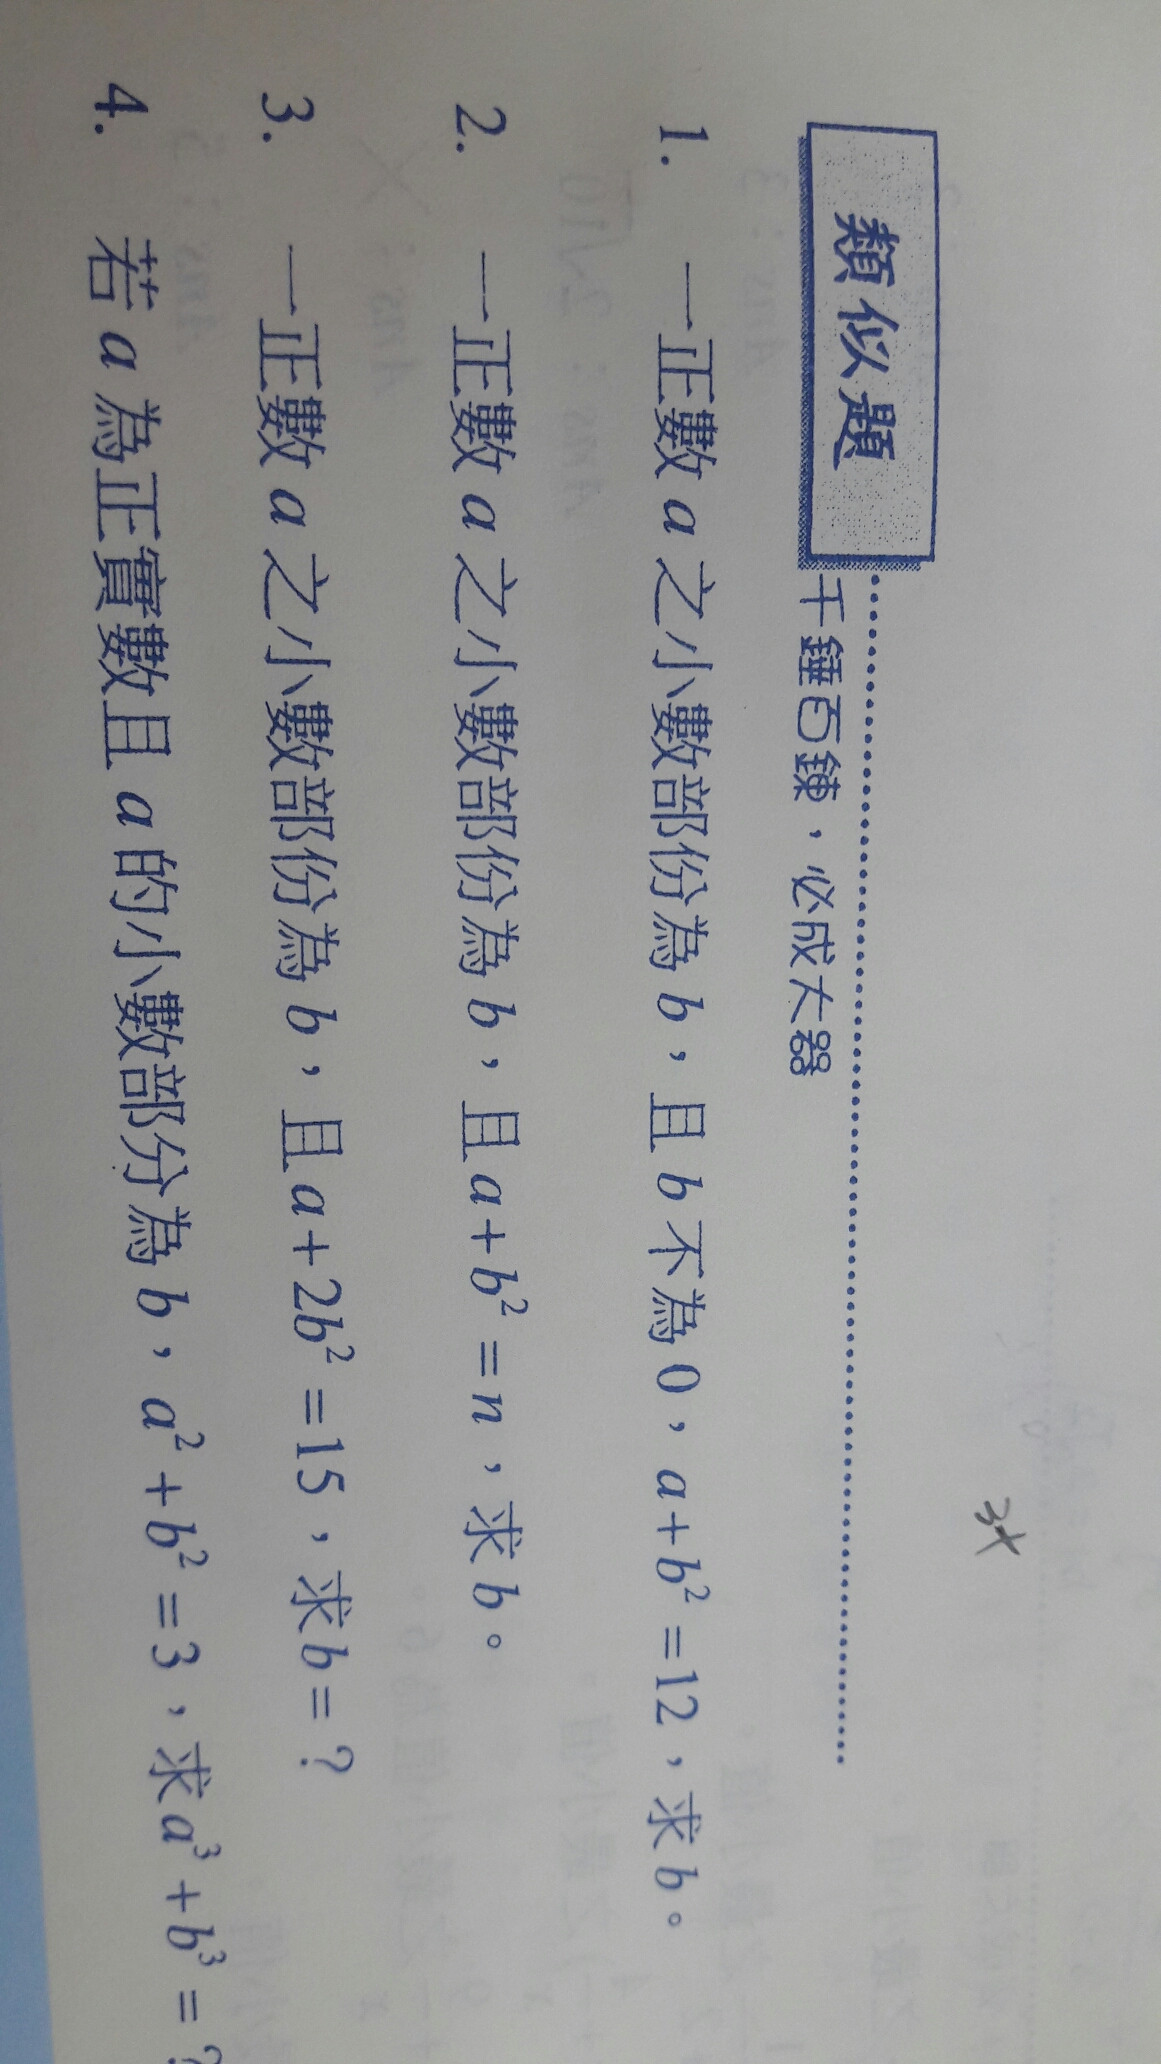 類似題
千錘百鍊，必成大器
1. 一正數 a 之小數部份為 b，且 b 不為 0，a+b²=12，求 b。
2. 一正數 a 之小數部份為 b，且 a+b²=n，求 b。
3. 一正數 a 之小數部份為 b，且 a+2b²=15，求 b=？
4. 若 a 為正實數且 a 的小數部分為 b，a²+b²=3，求 a³+b³=？